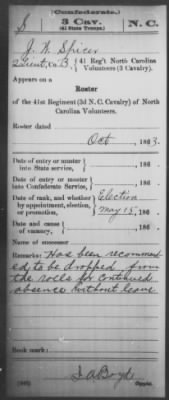 (Confederate.)
S 3 Cav. N. C.
(41 State Troops.)
J. W. Spicer
2 Lieut, Co. B, 41 Reg't North Carolina Volunteers (3 Cavalry).
Appears on a
Roster
of the 41st Regiment (3d N. C. Cavalry) of North
Carolina Volunteers.
Roster dated
Oct, 1863.
Date of entry or muster
into State service, 186 .
Date of entry or muster
into Confederate Service, 186 .
Date of rank, and whether
by appointment, election,
or promotion, Election
May 15, 186 .
Date and cause
of vacancy, 186 .
Name of successor
Remarks: Has been recommend
ed to be dropped from
the rolls for continued
absence without leave
Book mark:
S A Boyd
Copyist.